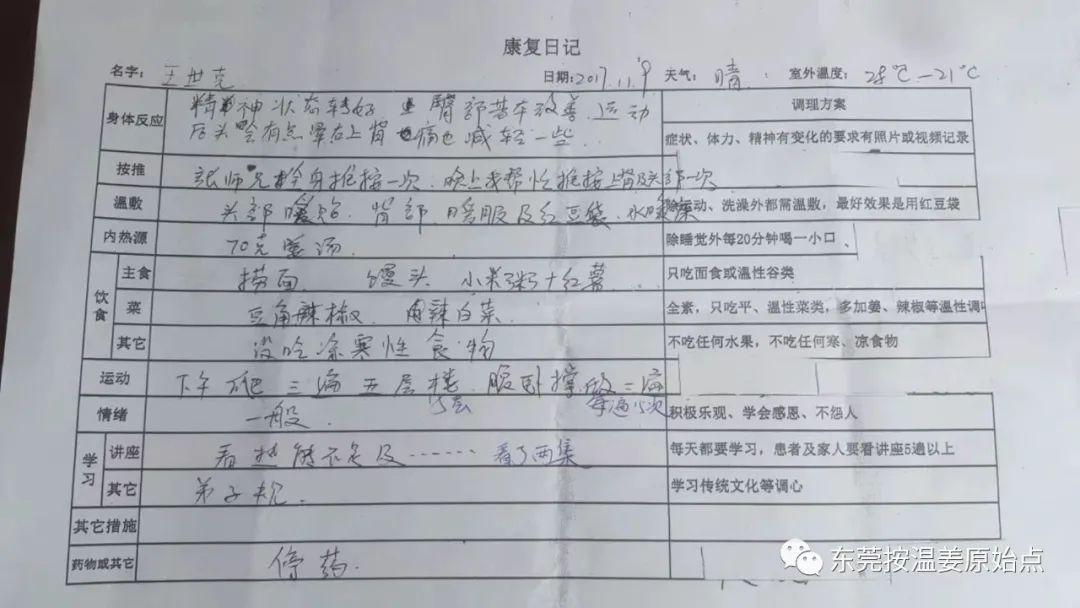 康复日记
名字: 王世克 日期: 2017.11.9 天气: 晴 室外温度: 28℃—21℃
身体反应 精神状态转好 臂部基本改善.运动 调理方案
后头会有点晕右上背也痛也减轻一些.. 症状、体力、精神有变化的要求有照片或视频记录
按推 张师兄全身推按一次.晚上我帮忙推按上背及头部一次
温敷 头部暖贴.背部.暖服及红豆袋、水暖 除运动、洗澡外都需温敷，最好效果是用红豆袋
内热源 70克姜汤. 除睡觉外每20分钟喝一小口
饮食 主食 捞面. 馒头 小米粥+红薯... 只吃面食或温性谷类
菜 豆角辣椒. 辣白菜. 全素，只吃平、温性菜类，多加姜、辣椒等温性调
其它 没吃凉寒性食物 不吃任何水果，不吃任何寒、凉食物
运动 下午爬三遍五层楼.腹卧撑做三遍
每遍15次
情绪 一般. 积极乐观、学会感恩、不怨人
学习 讲座 看热能不足及······ 看了两集 每天都要学习，患者及家人要看讲座5遍以上
其它 弟子规. 学习传统文化等调心
其它措施
药物或其它 停药.
东莞按温姜原始点